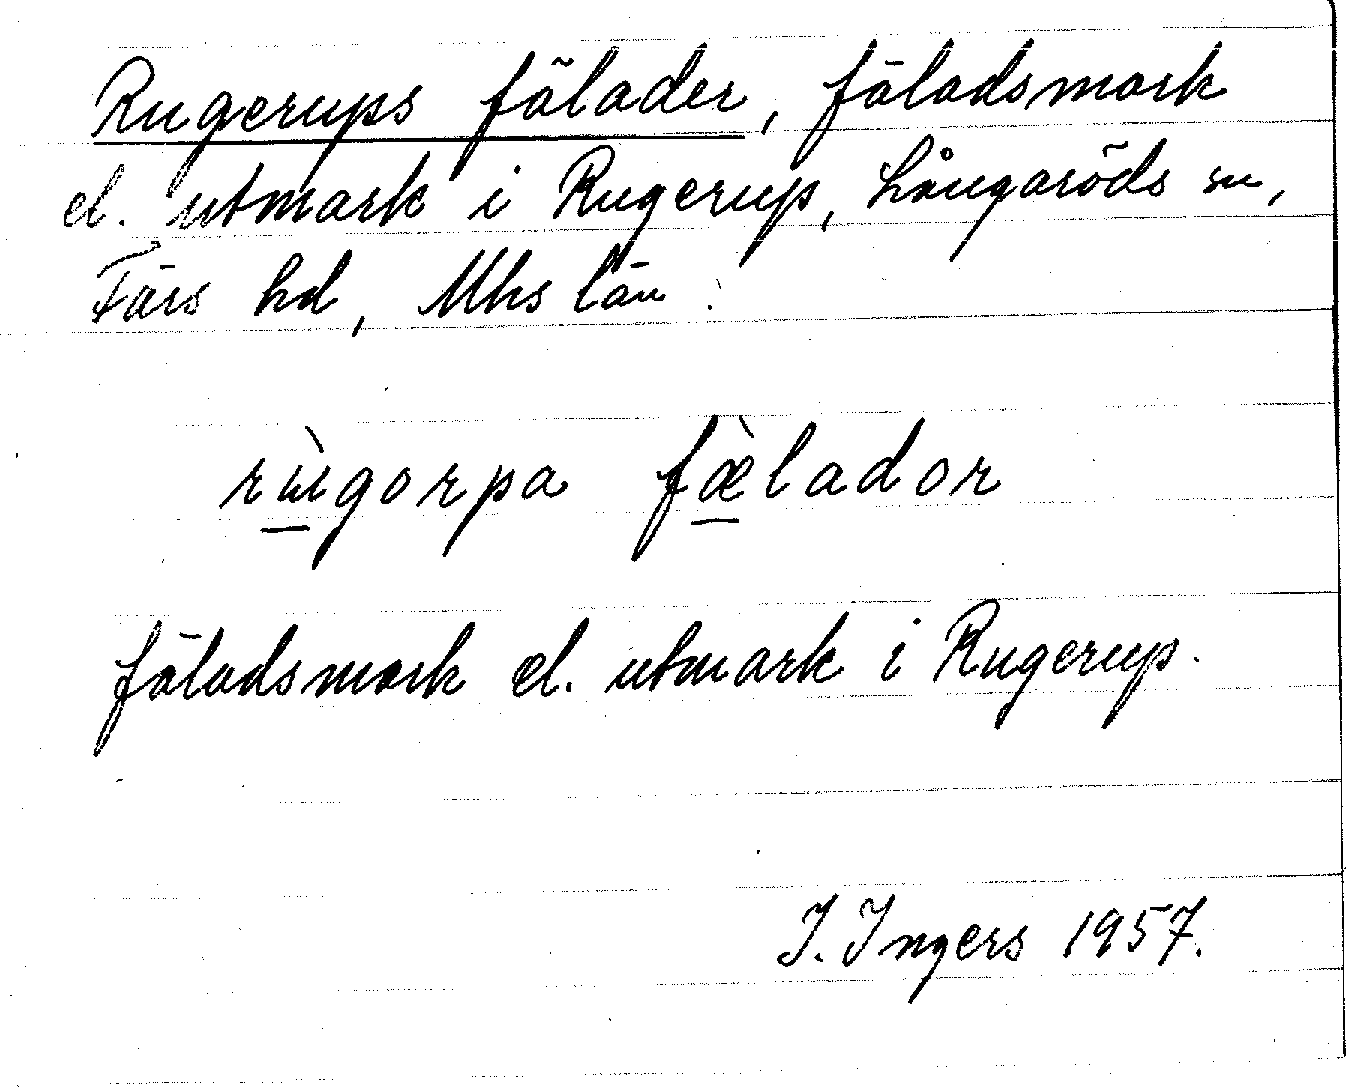 Rugerups fälader, fäladsmark
el. utmark i Rugerup, Långaröds sn,
Färs hd, Mhs län.
rùgorpa fæ̀lador
fäladsmark el. utmark i Rugerup.
I. Ingers 1957.